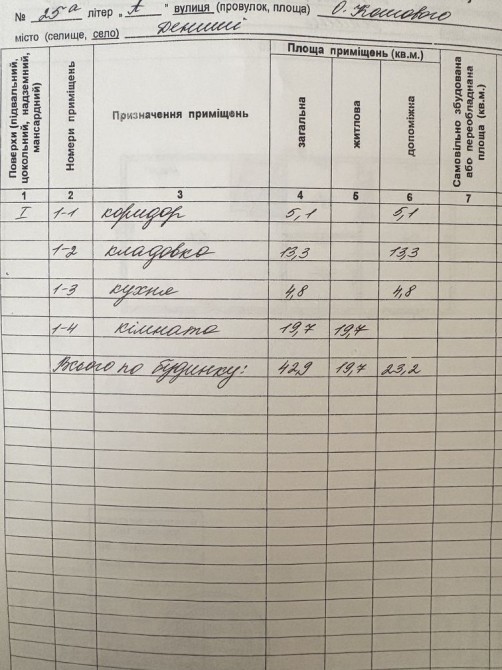 № 25а літер „ А " вулиця (провулок, площа) О. Кошового
місто (селище, село) Дениші
Поверхи (підвальний, цокольний, надземний, мансардний) Номери приміщень Призначення приміщень Площа приміщень (кв.м.) загальна житлова допоміжна Самовільно збудована або переобладнана площа (кв.м.)
1 2 3 4 5 6 7
І 1-1 коридор 5,1 5,1
1-2 кладовка 13,3 13,3
1-3 кухня 4,8 4,8
1-4 кімната 19,7 19,7
Всього по будинку: 42,9 19,7 23,2